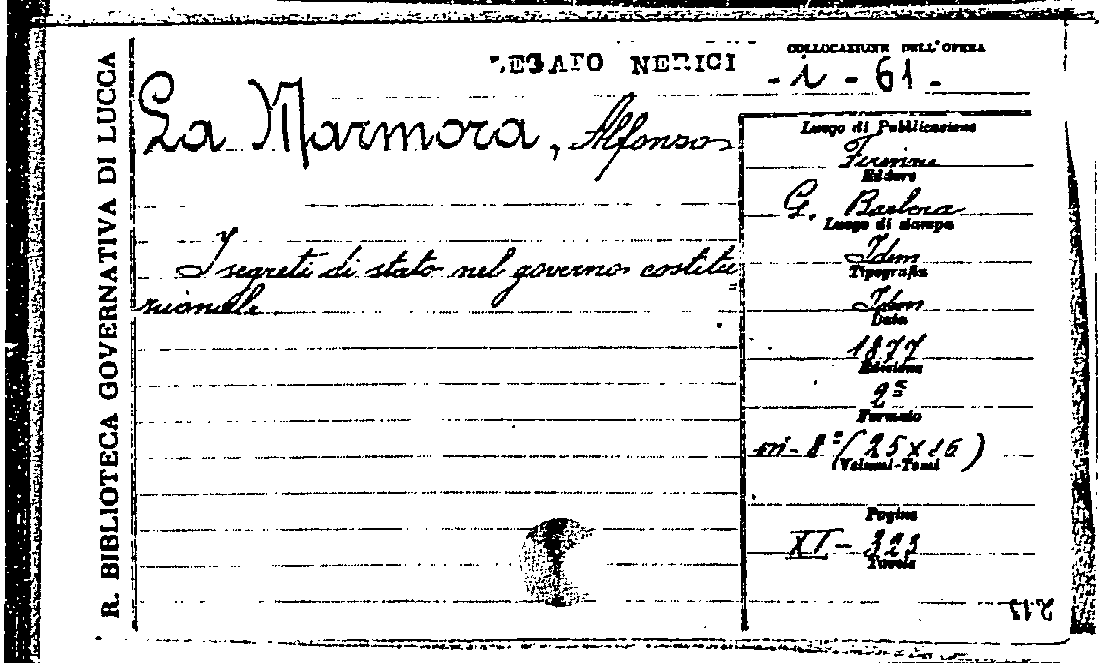 R. BIBLIOTECA GOVERNATIVA DI LUCCA
LEGATO NERICI
COLLOCAZIONE DELL'OPERA
- i - 61 -
La Marmora, Alfonso
I segreti di stato nel governo costitu=
zionale
Luogo di Pubblicazione
Firenze
Editore
G. Barbera
Luogo di stampa
Idem
Tipografia
Idem
Data
1877
Edizione
2ª
Formato
in-8º (25x16)
(Volumi-Tomi
Pagine
XI - 323
Tavole